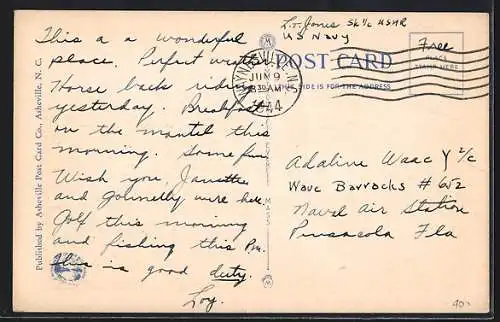 L.O. Jones SK 1/c USNR
US Navy
Free
PLACE
STAMP HERE
POST CARD
THIS SIDE IS FOR THE ADDRESS
WAYNESVILLE, N.C.
JUN 9
8 30 AM
1944
This a a wonderful
place. Perfect
Horse back riding
yesterday. Breakfast
on the mantel this
morning. Some fun
Wish you, Janette
and were here.
Golf this morning
and fishing this P.M.
This is good duty.
Loy.
Adaline Waac Y 2/c
Wave Barracks # 652
Naval Air Station
Pensacola Fla
Published by Asheville Post Card Co., Asheville, N. C.
40